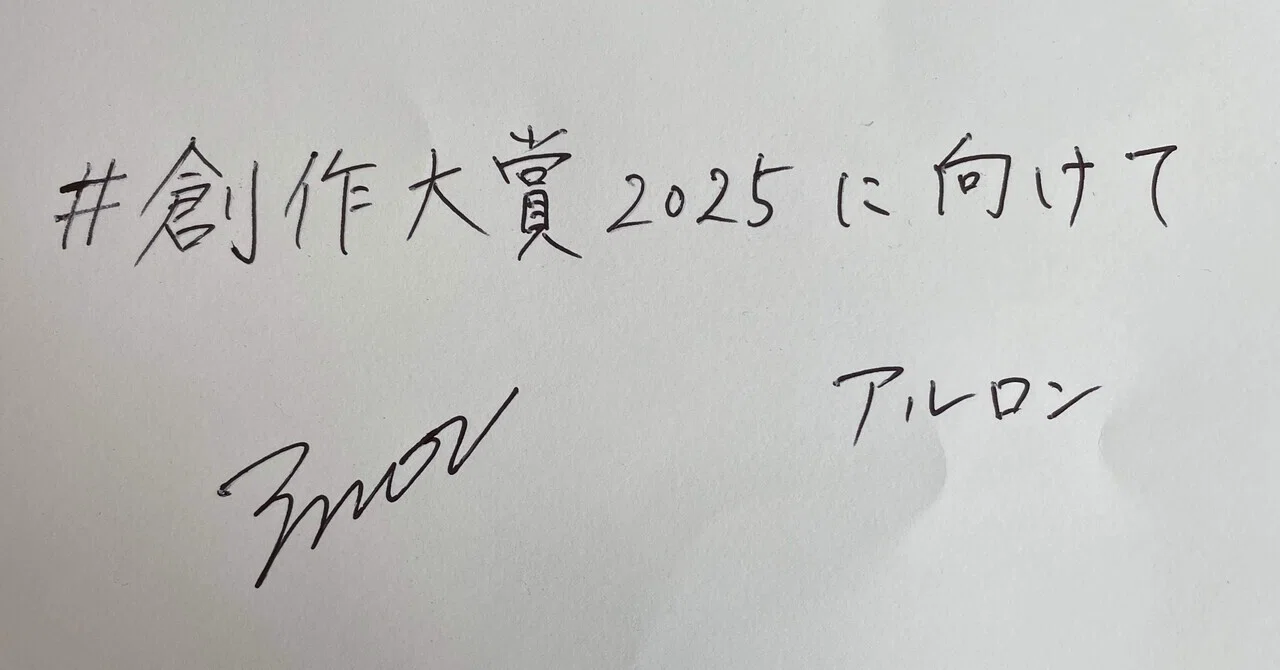 #創作大賞2025に向けて
アルロン